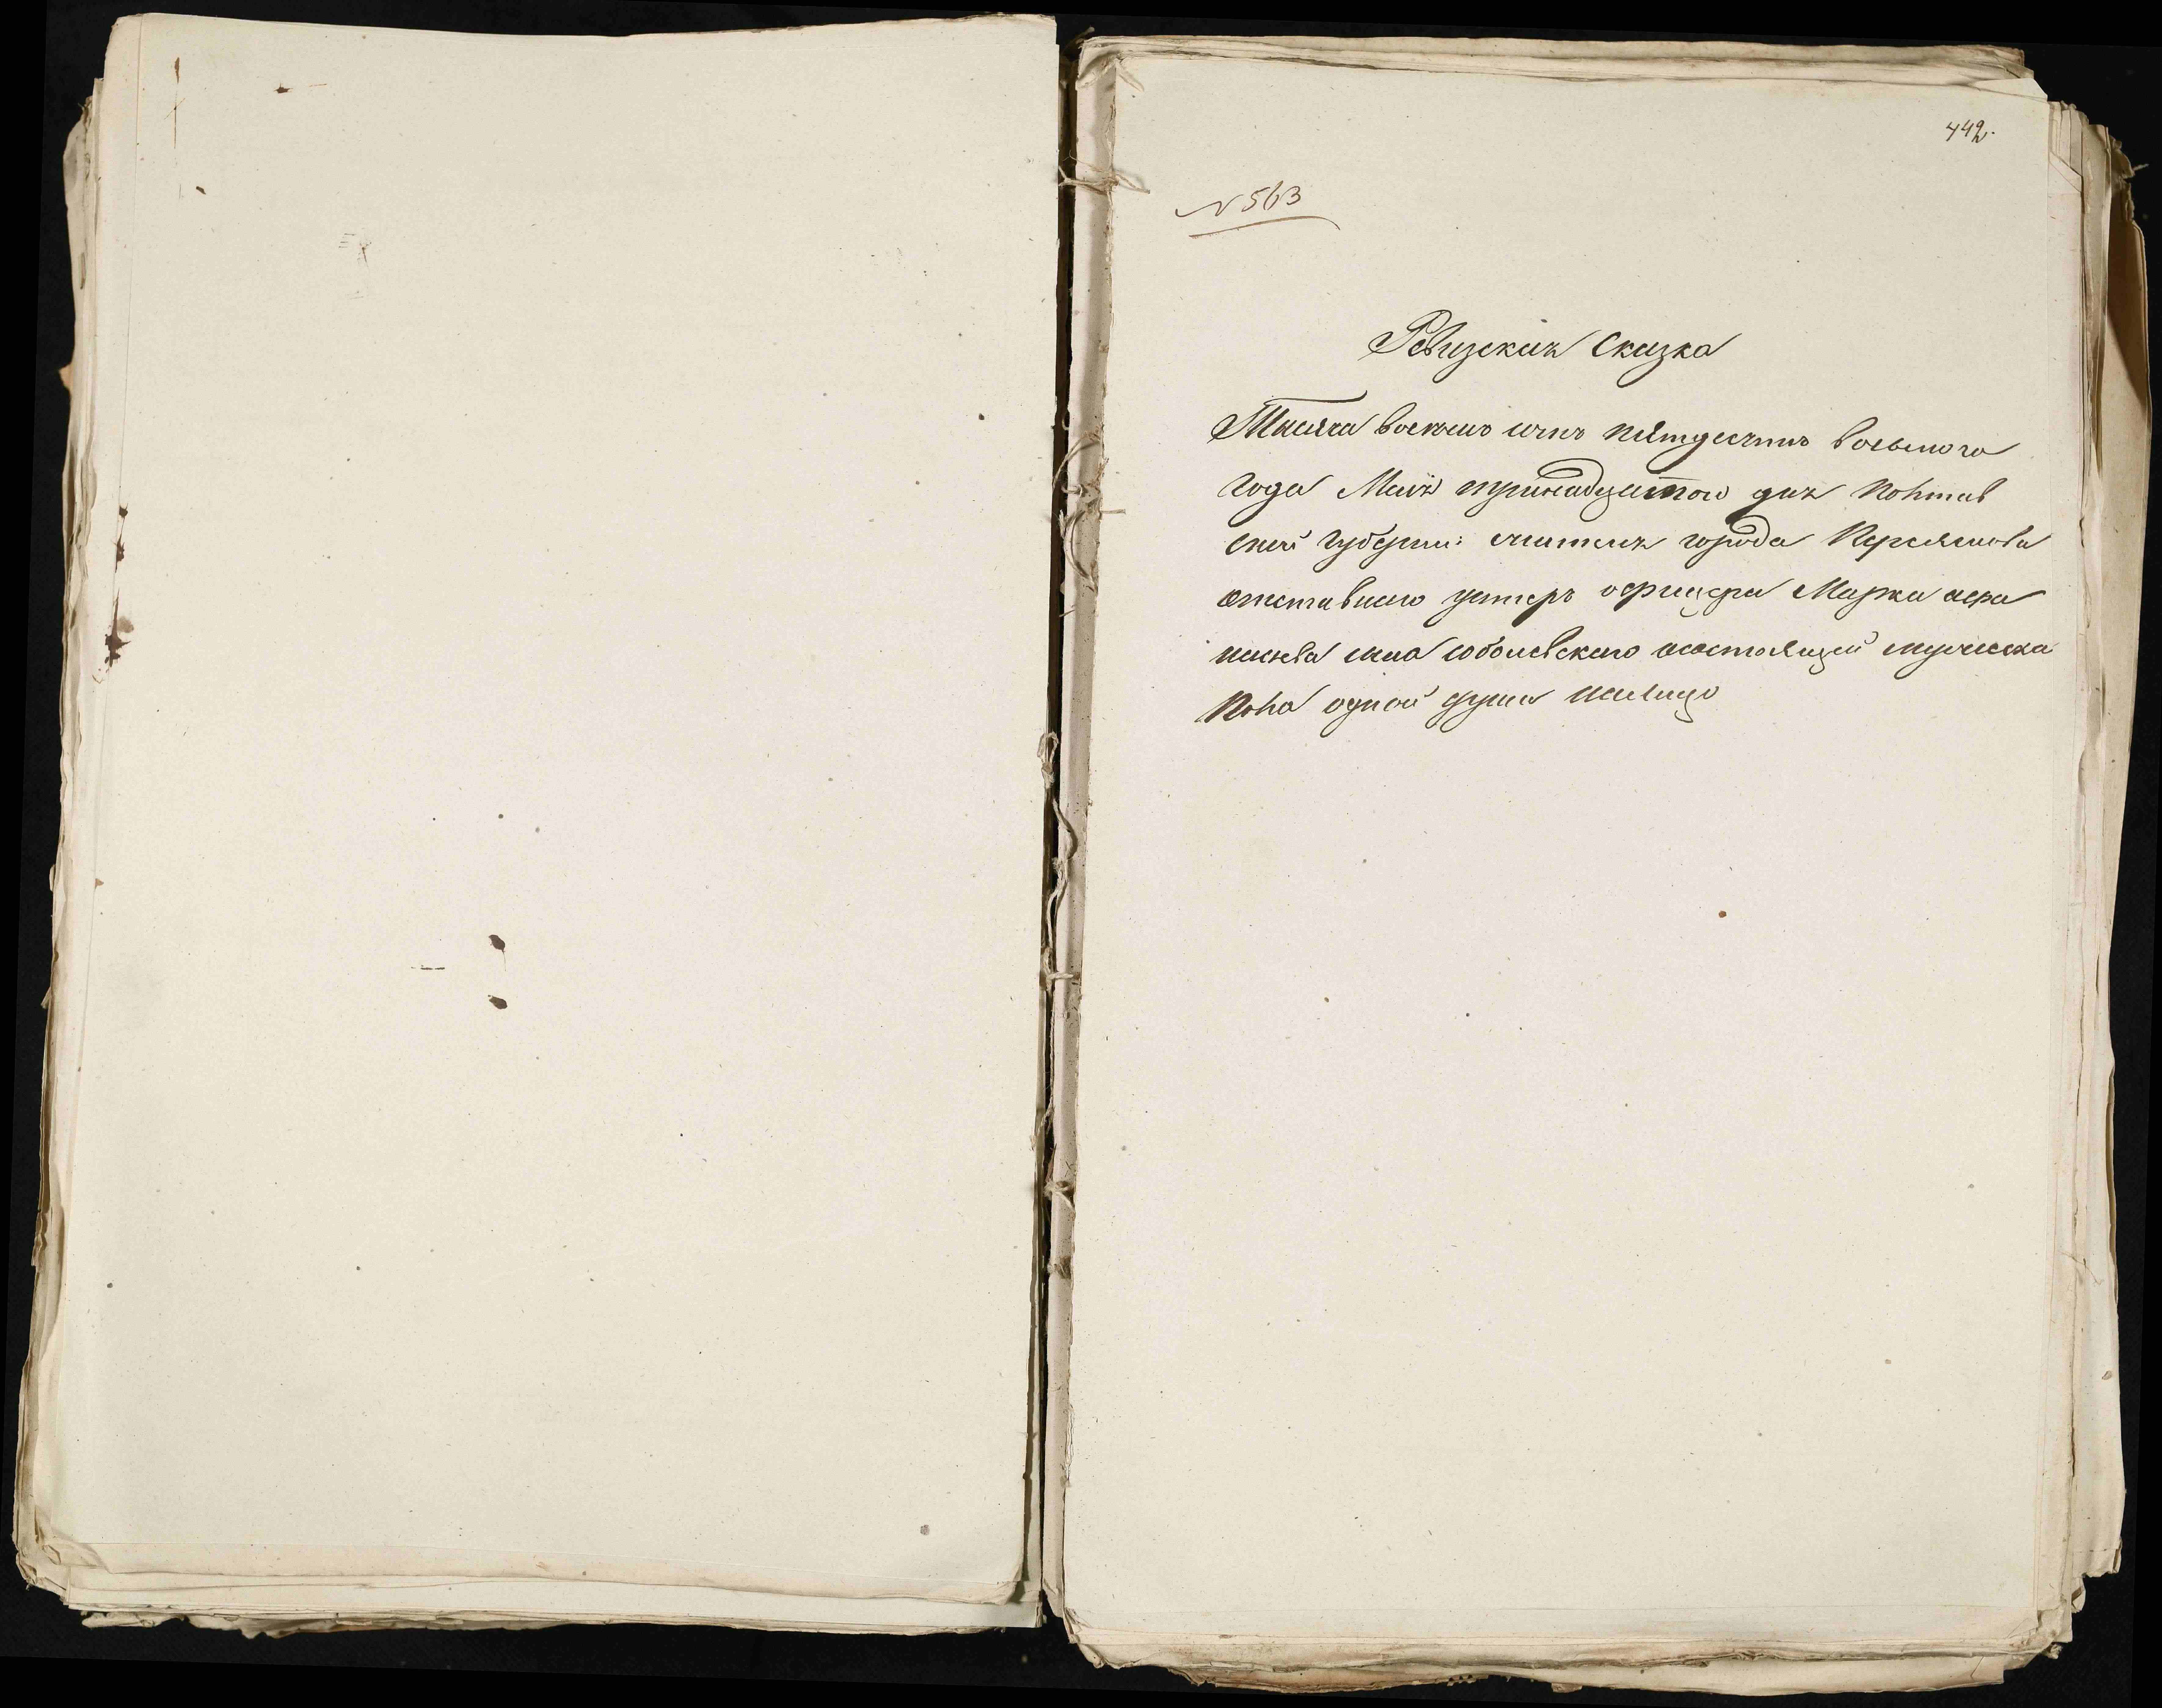 442.
№ 563
Ревизская Сказка
Тысяча восемь сотъ пятдесятъ восьмого
года Маія тринадцатого дня Полтав
ской губерніи жителя города Переяслова
отставного унтеръ офицера Марка
сына Соболевского состоящей мужеска
пола одной души налицо